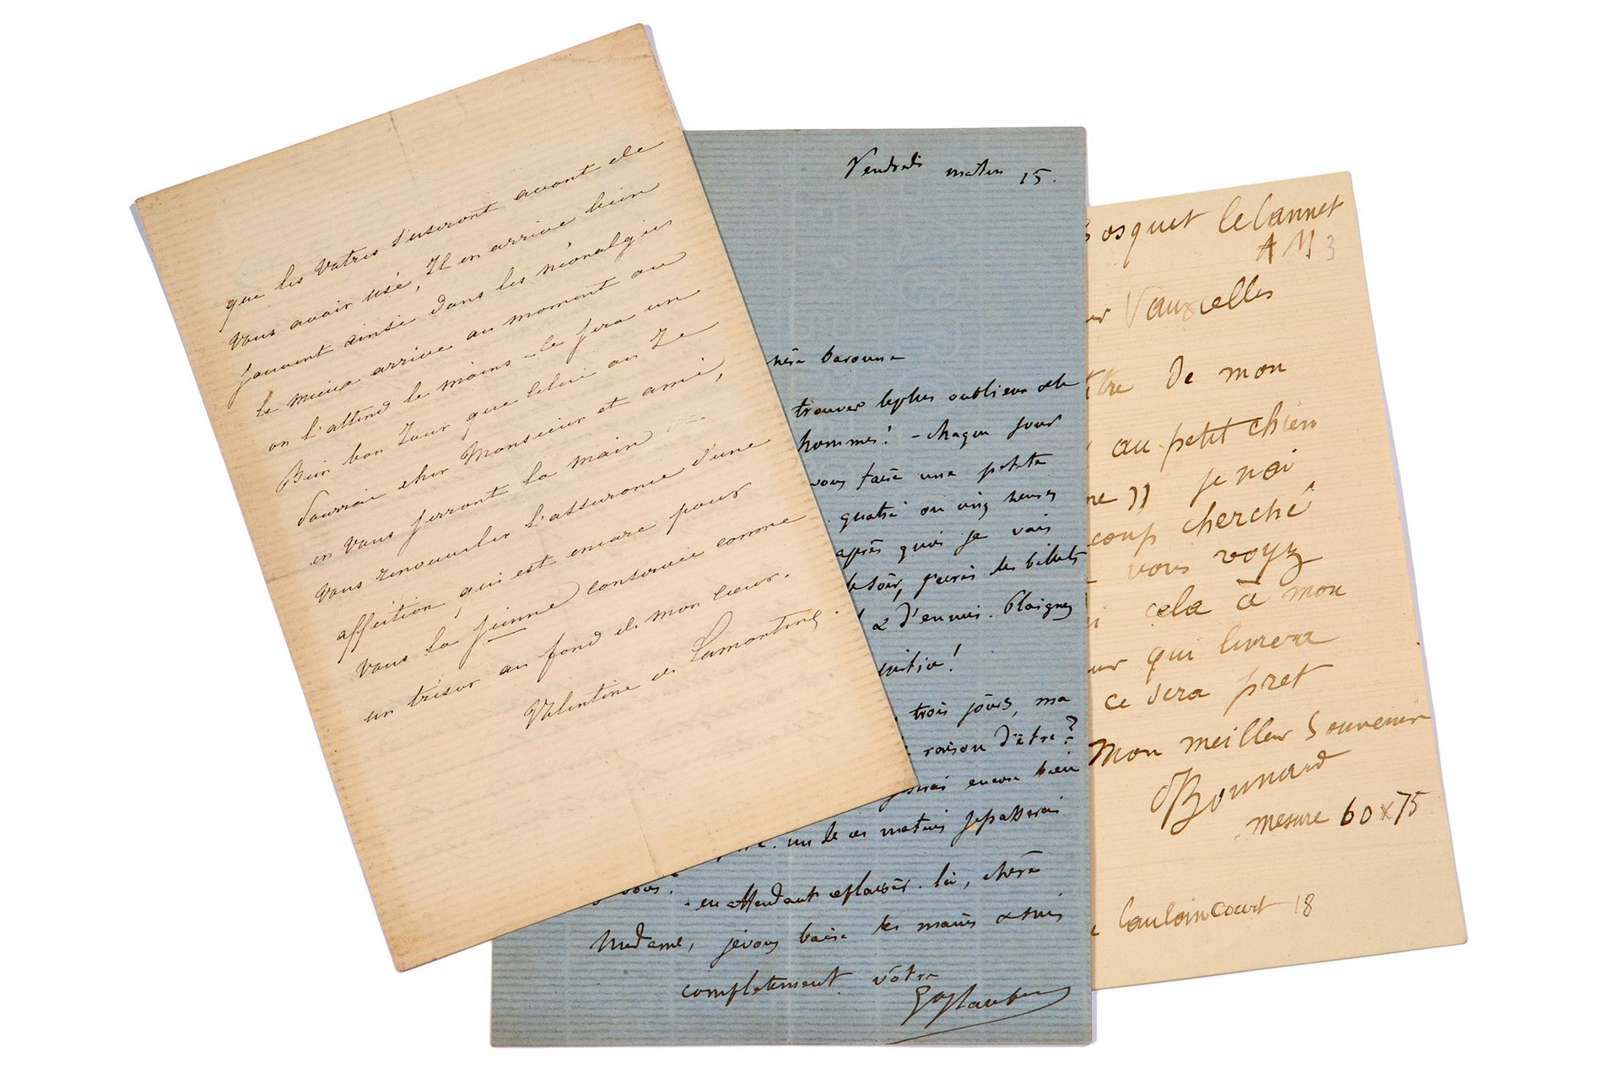 que les vôtres s'useront avant de
vous avoir usé, Il en arrive bien
souvent ainsi dans les névralgies
le mieux arrive au moment où
on l'attend le moins - ce sera un
Bien bon Jour que celui où Je
pourrai cher Monsieur et ami,
en vous serrant la main
vous renouveler l'assurance d'une
affection, qui est encore pour
vous la sienne conservée comme
un trésor au fond de mon cœur.
Valentine de Lamartine
Vendredi matin 15.
chère baronne
trouver le plus oublieux de
hommes! - chaque jour
vous faire une petite
quatre ou cinq heures
après quoi je vais
le soir, j'écris des billets
& d'ennui. Plaignez
trois jours, ma
raison d'être?
encore bien
un de ces matins je passerai
vous. - en attendant ce plaisir-là, chère
Madame, je vous baise les mains & suis
complètement vôtre
G Flaubert
Bosquet le Cannet
A M 3
Vauxcelles
titre de mon
au petit chien
je n'ai
coup cherché
vous voyez
cela à mon
qui livrera
ce sera pret
Mon meilleur Souvenir
PBonnard
mesure 60 x 75
Caulaincourt 18